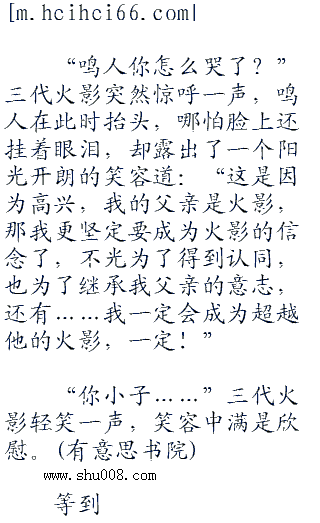 [m.hcihci66.com]
“鸣人你怎么哭了？”
三代火影突然惊呼一声，鸣
人在此时抬头，哪怕脸上还
挂着眼泪，却露出了一个阳
光开朗的笑容道：“这是因
为高兴，我的父亲是火影，
那我更坚定要成为火影的信
念了，不光为了得到认同，
也为了继承我父亲的意志，
还有……我一定会成为超越
他的火影，一定！”
“你小子……”三代火
影轻笑一声，笑容中满是欣
慰。(有意思书院)
www.shu008.com
等到